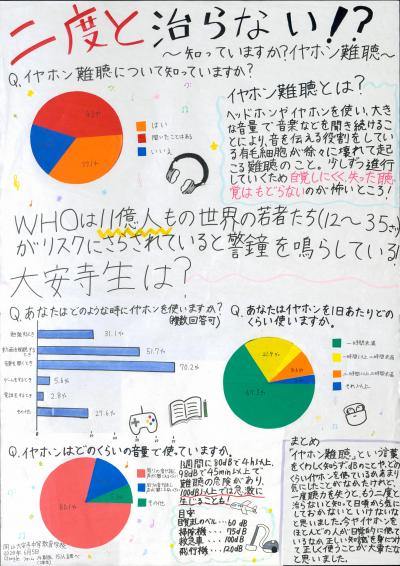 二度と治らない!?
〜知っていますか?イヤホン難聴〜
Q.イヤホン難聴について知っていますか?
はい
聞いたことはある
いいえ
イヤホン難聴とは?
ヘッドホンやイヤホンを使い、大き
な音量で音楽などを聞き続けるこ
とにより、音を伝える役割をして
いる有毛細胞が徐々に壊れて起
こる難聴のこと。少しずつ進行
していくため自覚しにくく、失った聴
覚はもどらないのが怖いところ!
WHOは11億人もの世界の若者たち(12〜35さい)
がリスクにさらされていると警鐘を鳴らしている!
大安寺生は?
Q.あなたはどのような時にイヤホンを使いますか?
(複数回答可)
勉強するとき
31.1%
51.7%
音楽を聞くとき
70.2%
ゲームをするとき
5.6%
電話をするとき
2.8%
その他
27.6%
Q.あなたはイヤホンを1日あたりどの
くらい使いますか。
一時間未満
一時間以上二時間未満
二時間以上三時間未満
それ以上
67.3%
Q.イヤホンはどのくらいの音量で使っていますか。
その他
1週間に80dBで4h以上、
98dBで45min以上で
難聴の危険があり、
100dB以上では急激に
生じることも。
目安
掃除機…75dB
救急車…100dB
飛行機…120dB
まとめ
「イヤホン難聴」という言葉
をくわしく知らず、dBのことや、どの
くらいイヤホンを使っているかあまり
気にしたことがなかったけれど、
一度聴力を失うと、もう二度と
治らないと知って日頃から気に
しておかないといけないな
と思いました。今やイヤホンを
ほとんどの人が日常的に使って
いるからこそ正しい知識を身につけ
て正しく使うことが大事だな
と思いました。